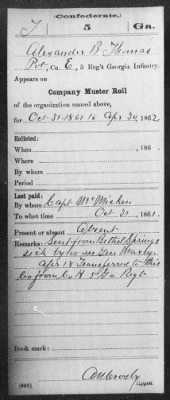 (Confederate.)
T 5 Ga.
Alexander R Thomas
Pvt, Co. E, 5 Reg't Georgia Infantry.
Appears on
Company Muster Roll
of the organization named above,
for Oct 31-1861 to Apr 30, 1862
Enlisted:
When , 186 .
Where
By whom
Period
Last paid:
By whom Capt McMicken
To what time Oct 31, 1861.
Present or absent Absent
Remarks: Sent from Bethel Springs
sick by order Gen
Apr 18 Transferred to this
Co from Co H 5 Ga Regt
Book mark:
(642) Copyist.